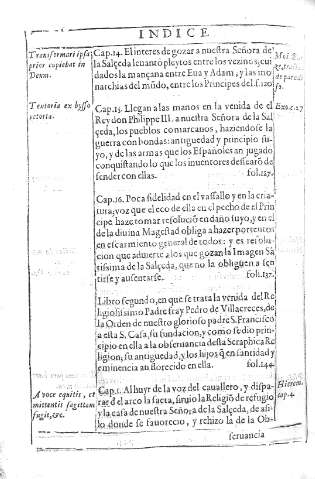 INDICE
Transformari ipsa
prior cupiebat in
Deum.
Cap. 14. El interes de gozar a nuestra Señora de
la Salçeda leuantò pleytos entre los vezinos, cui
dados la mançana entre Eua y Adam, y las mo
narchias del mũdo, entre los Principes del. f. 120.
Tentoria ex bysso
retorta.
Exo. c. 27
Cap. 15. Llegan a las manos en la venida de el
Rey don Philippe III. a nuestra Señora de la Sal
çeda, los pueblos comarcanos, haziendose la
guerra con hondas: antiguedad y principio su-
yo, y de las armas que los Españoles an jugado
conquistando lo que los inuentores dessearõ de
fender con ellas. fol. 127.
Cap. 16. Poca fidelidad en el vassallo y en la cria
tura, voz que el eco de ella en el pecho de el Prin
cipe haze tomar resoluciõ en daño suyo, y en el
de la diuina Magestad obliga a hazer portentos
en escarmiento general de todos: y es resolu
cion que aduierte a los que gozan la Imagen Sã
tissima de la Salçeda, que no la obliguen a sen
tirse y ausentarse. fol. 137.
Libro segundo, en que se trata la venida del Re
ligiosissimo Padre fray Pedro de Villacreces, de
la Orden de nuestro glorioso padre S. Francisco
a esta S. Casa, su fundacion, y como se dio prin
cipio en ella a la obseruancia desta Seraphica Re
ligion, su antiguedad, y los hijos q̃ en santidad y
eminencia an florecido en ella. fol. 144.
A voce equitis, et
mittentis sagittam
fugit, &c.
Hierem.
cap. 4.
Cap. 1. Al huyr de la voz del cauallero, y dispa-
rar d el arco la saeta, siruio la Religiõ de refugio
y la casa de nuestra Señora de la Salçeda, de asi
lo donde se fauorecio, y rehizo la de la Ob-
seruancia